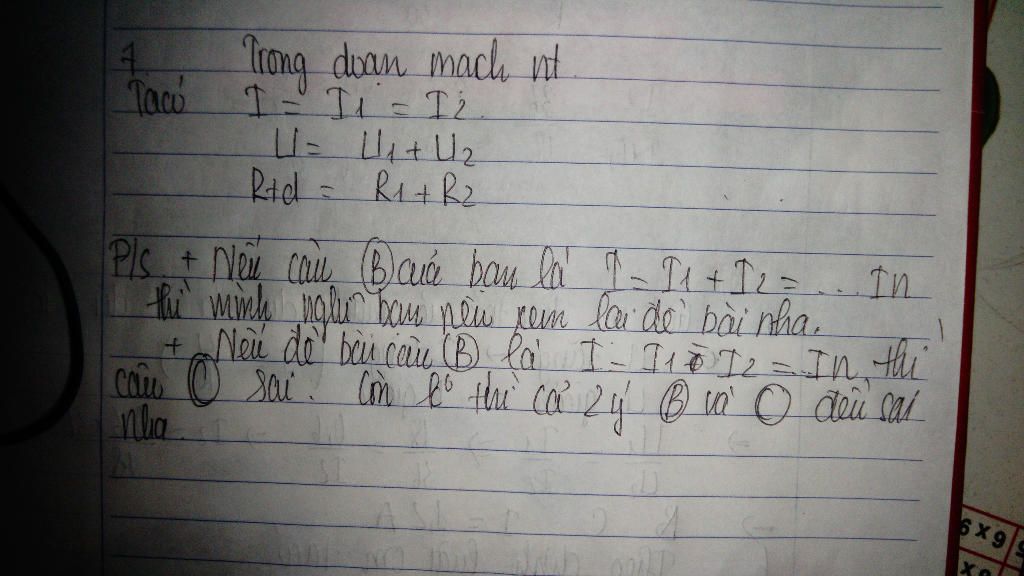 7 Trong đoạn mạch nt.
Ta có I = I1 = I2.
U = U1 + U2
Rtđ = R1 + R2
P/s + Nếu câu B của bạn là I = I1 + I2 = ... In
thì mình nghĩ bạn nên xem lại đề bài nha.
+ Nếu đề bài câu B là I = I1 = I2 = In thì
câu C sai. Còn ko thì cả 2 ý B và C đều sai
nha.
6 x 9